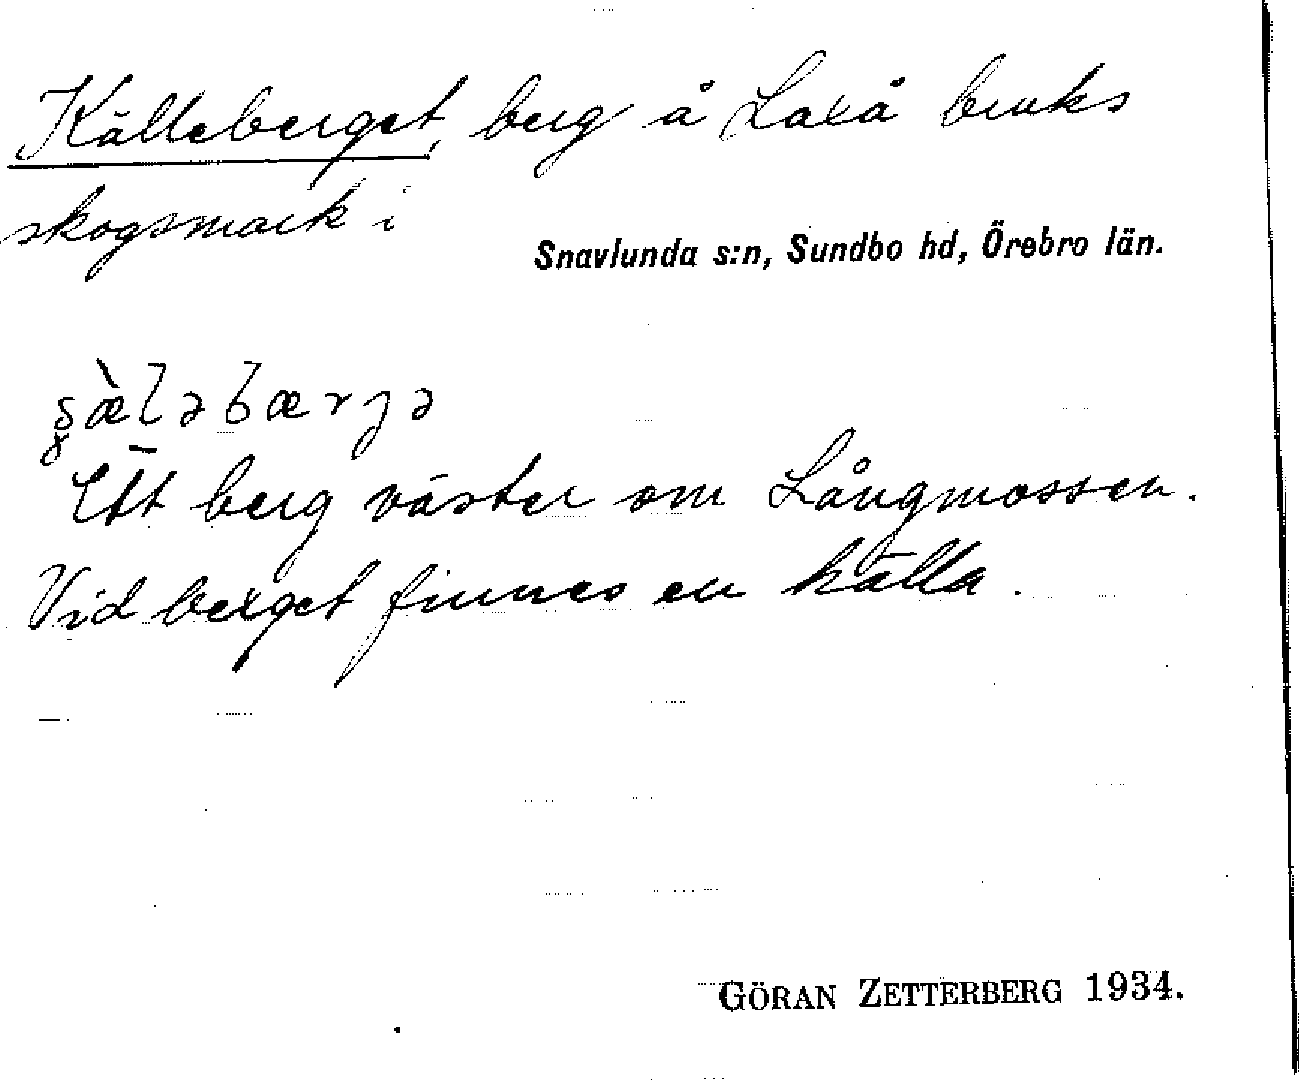 Källeberget, berg å Laxå bruks
skogsmark i
Snavlunda s:n, Sundbo hd, Örebro län.
Ett berg väster om Långmossen.
Vid berget finnes en källa.
GÖRAN ZETTERBERG 1934.